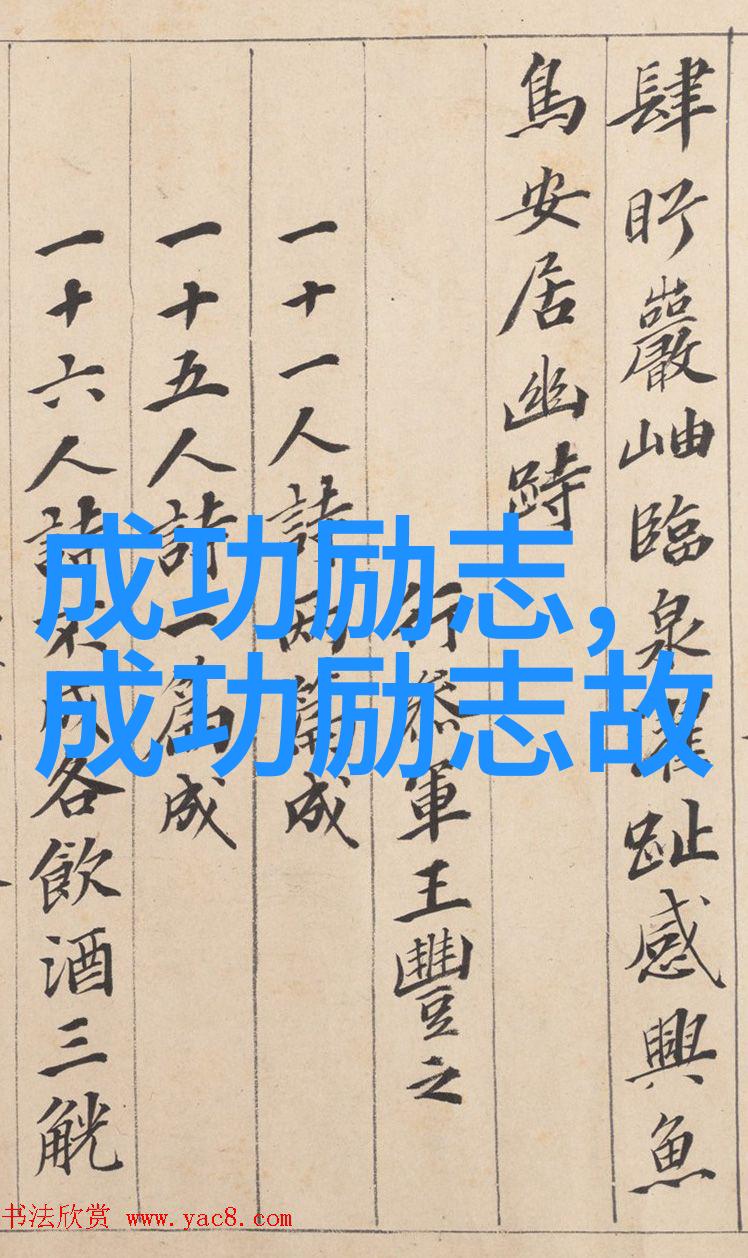 肆盱巖岫臨泉濯趾感興魚
鳥安居幽跱
行參軍王豐之
一十一人詩兩篇成
一十五人詩一篇成
一十六人詩不成各飲酒三觥
成功励志，
成功励志故
书法欣赏 www.yac8.com